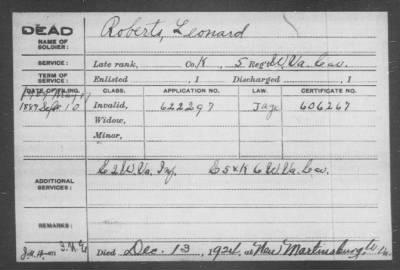 DEAD
NAME OF SOLDIER: Roberts, Leonard
SERVICE: Late rank, Co. K, 5 Reg't W. Va. Cav.
TERM OF SERVICE: Enlisted , 1 Discharged , 1
DATE OF FILING. CLASS. APPLICATION NO. LAW. CERTIFICATE NO.
1887 Sept. 10 Invalid, 622297 606267
Widow,
Minor,
ADDITIONAL SERVICES: E 2 W. Va. Inf. E 5 & K 6 W. Va. Cav.
REMARKS:
Died Dec. 13, 1924, at New Martinsburg, W. Va.